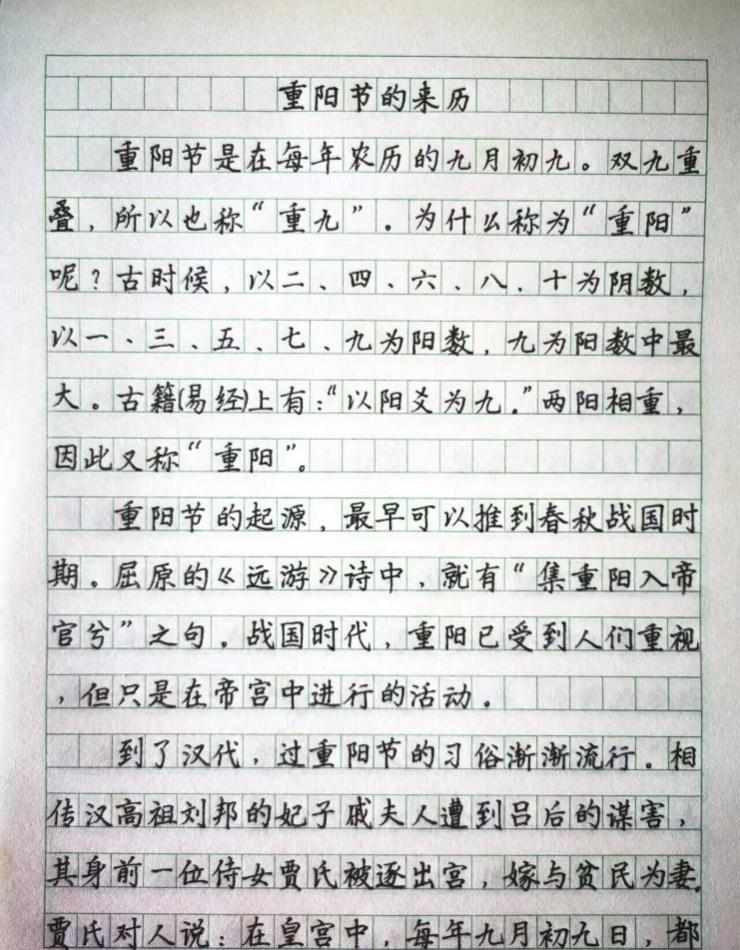 重阳节的来历
重阳节是在每年农历的九月初九。双九重
叠，所以也称“重九”。为什么称为“重阳”
呢？古时候，以二、四、六、八、十为阴数，
以一、三、五、七、九为阳数，九为阳数中最
大。古籍(易经)上有：“以阳爻为九。”两阳相重，
因此又称“重阳”。
重阳节的起源，最早可以推到春秋战国时
期。屈原的《远游》诗中，就有“集重阳入帝
官兮”之句。战国时代，重阳已受到人们重视
，但只是在帝宫中进行的活动。
到了汉代，过重阳节的习俗渐渐流行。相
传汉高祖刘邦的妃子戚夫人遭到吕后的谋害，
其身前一位侍女贾氏被逐出宫，嫁与贫民为妻。
贾氏对人说：在皇宫中，每年九月初九日，都